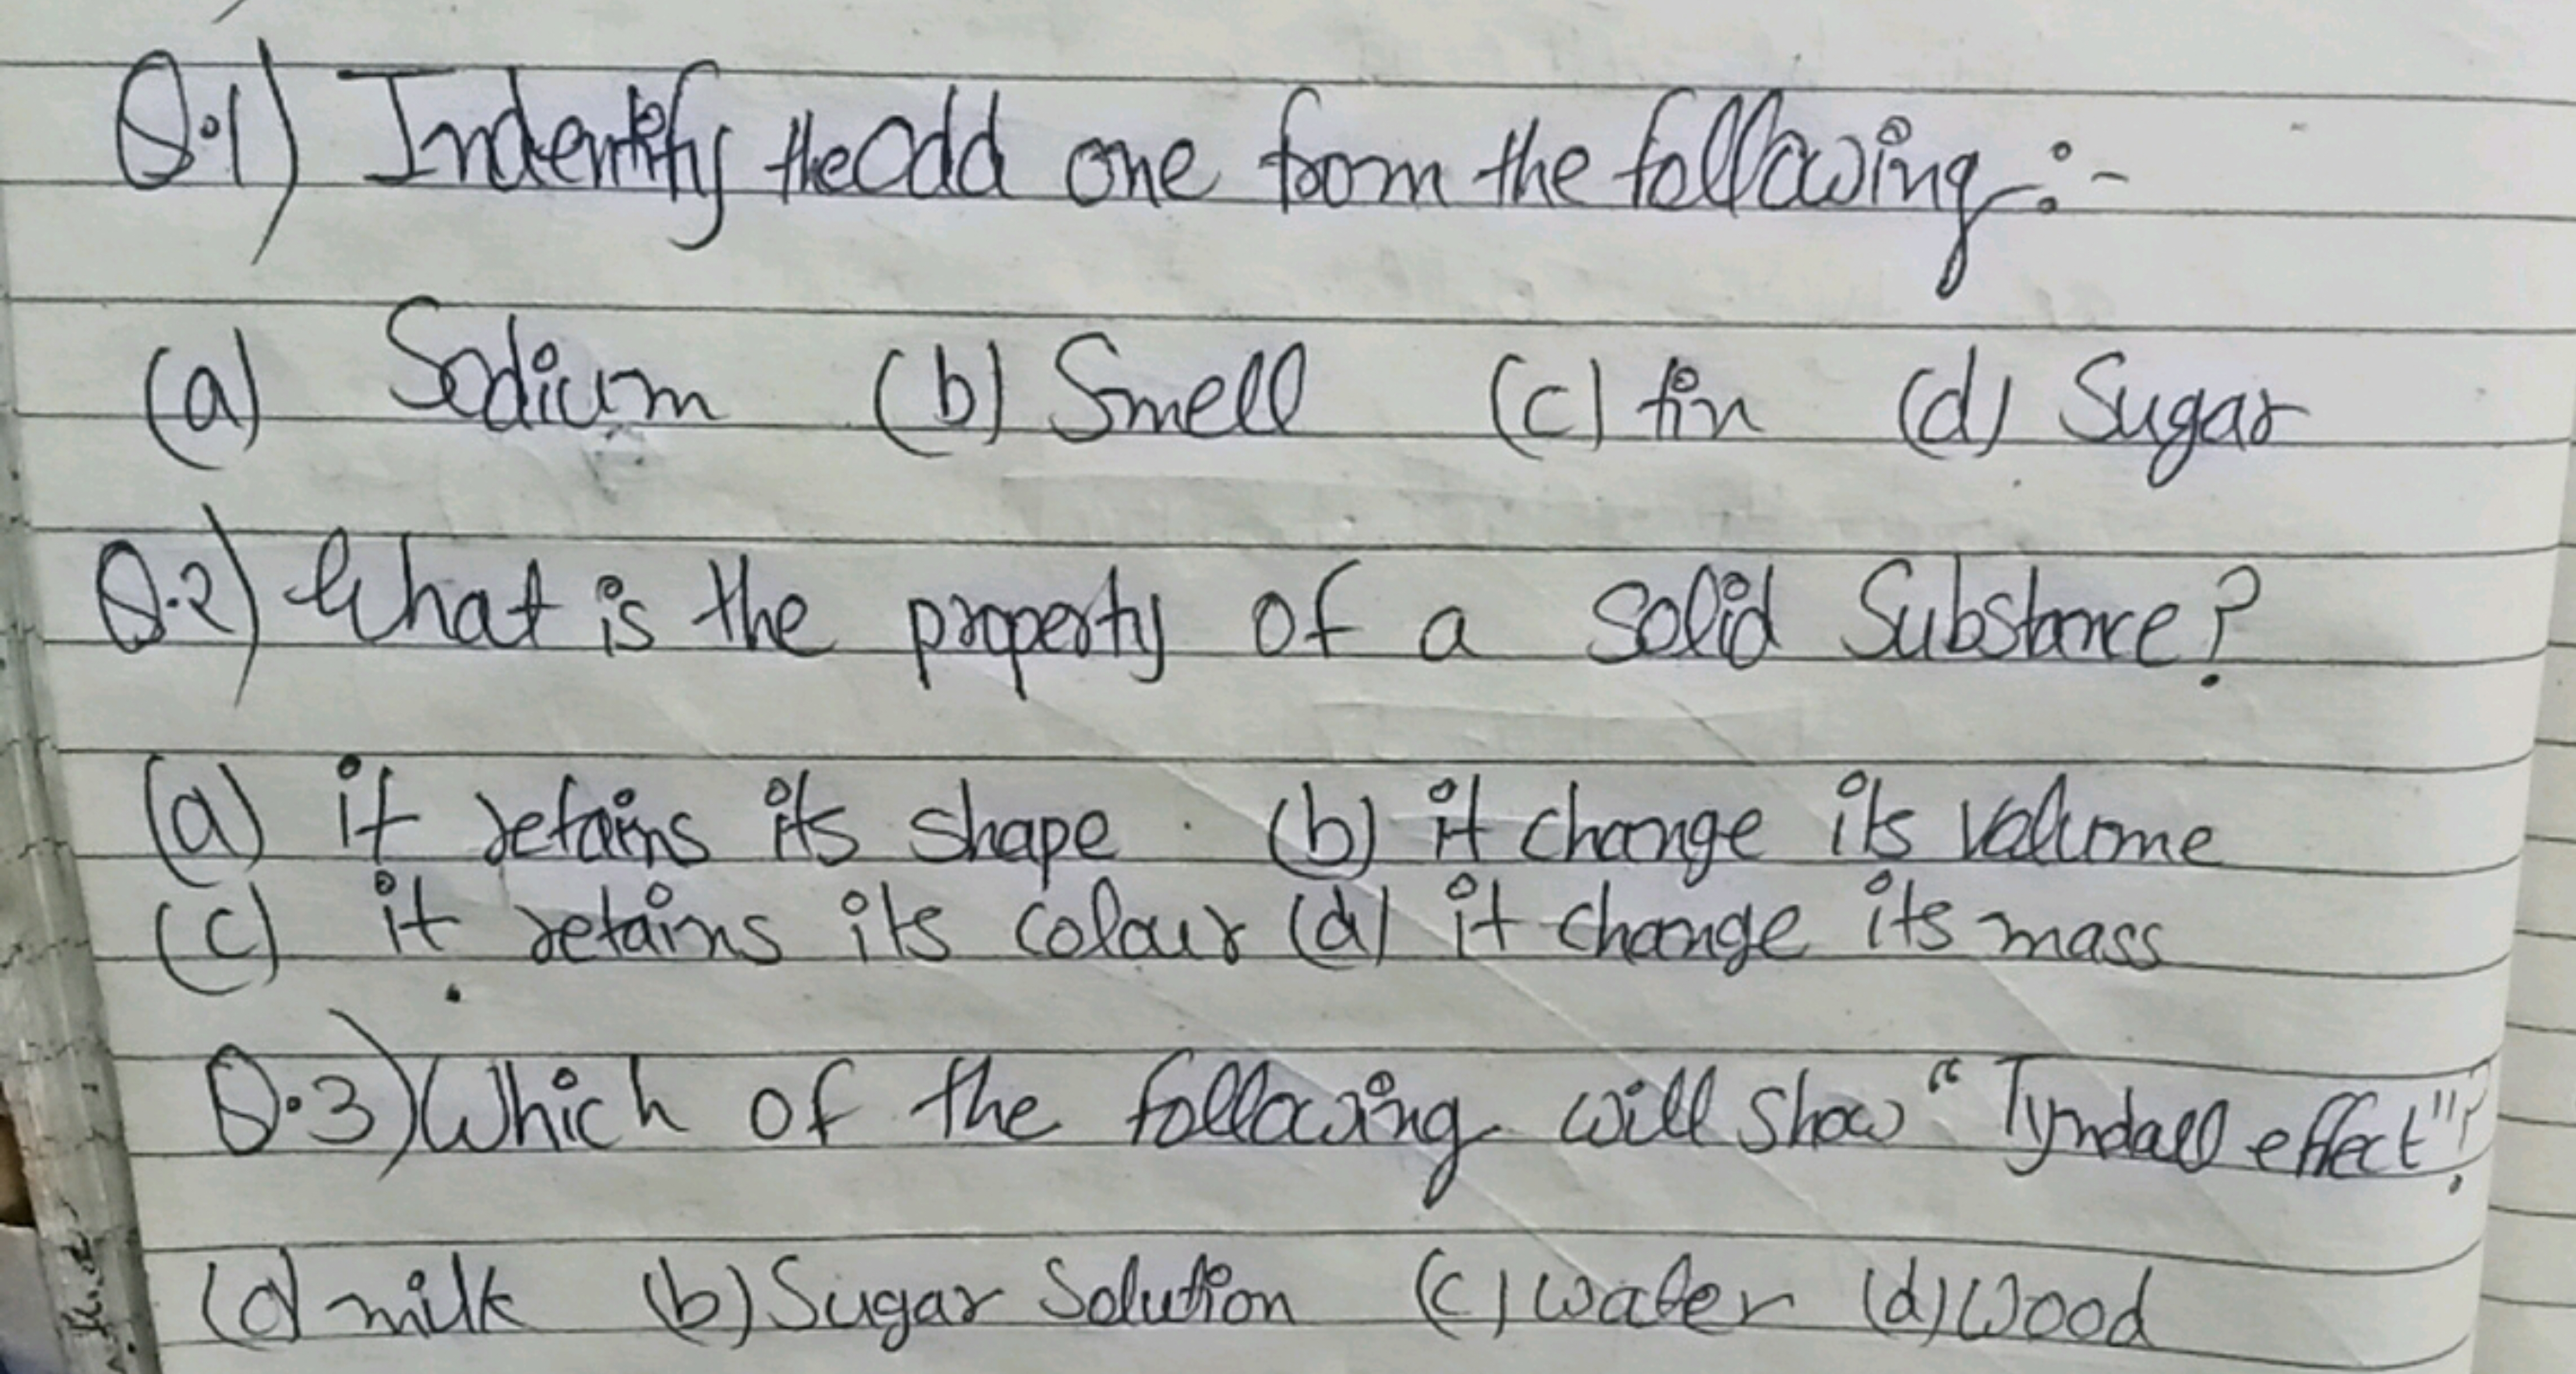 Q.1) Indentify the Odd one from the following :-
(a) Sodium (b) Smell (c) tin (d) Sugar
Q.2) What is the property of a solid Substance?
(a) it retains its shape . (b) it change its volume
(c) it retains its colour (d) it change its mass
Q.3) Which of the following will show "Tyndall effect"?
(a) milk (b) Sugar Solution (c) water (d) wood